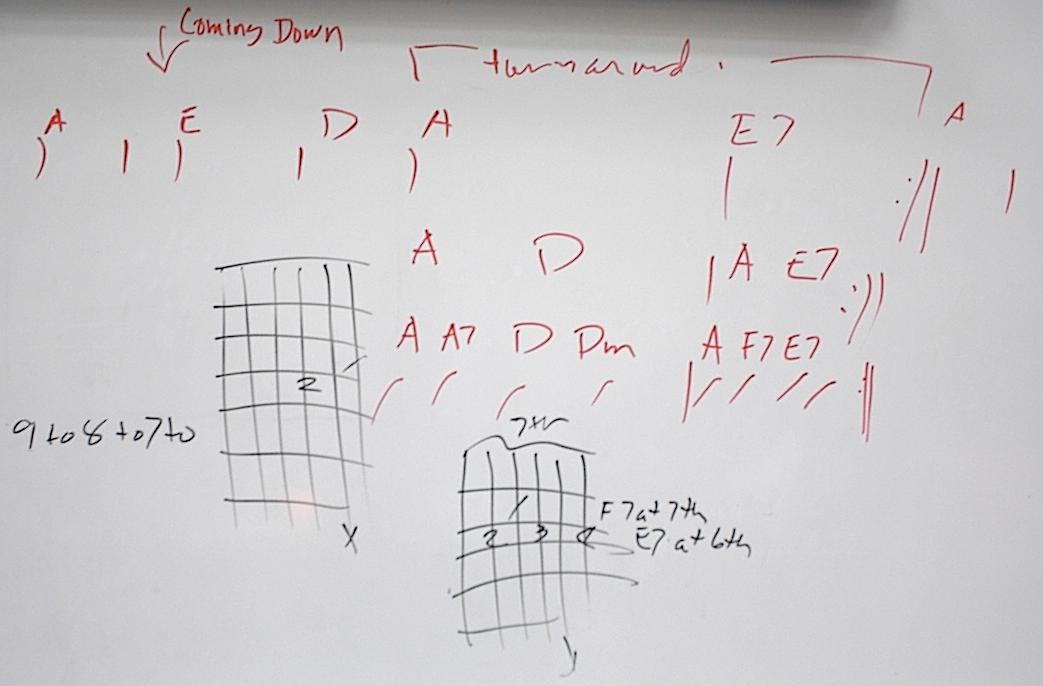 Coming Down
turnaround.
A E D A E7 A
A D | A E7 :||
A A7 D Dm A F7 E7
/ / / / | / / / / ||
2
9 to 8 to 7 to
7th
F7 at 7th
2 3 4 E7 at 6th
X
y